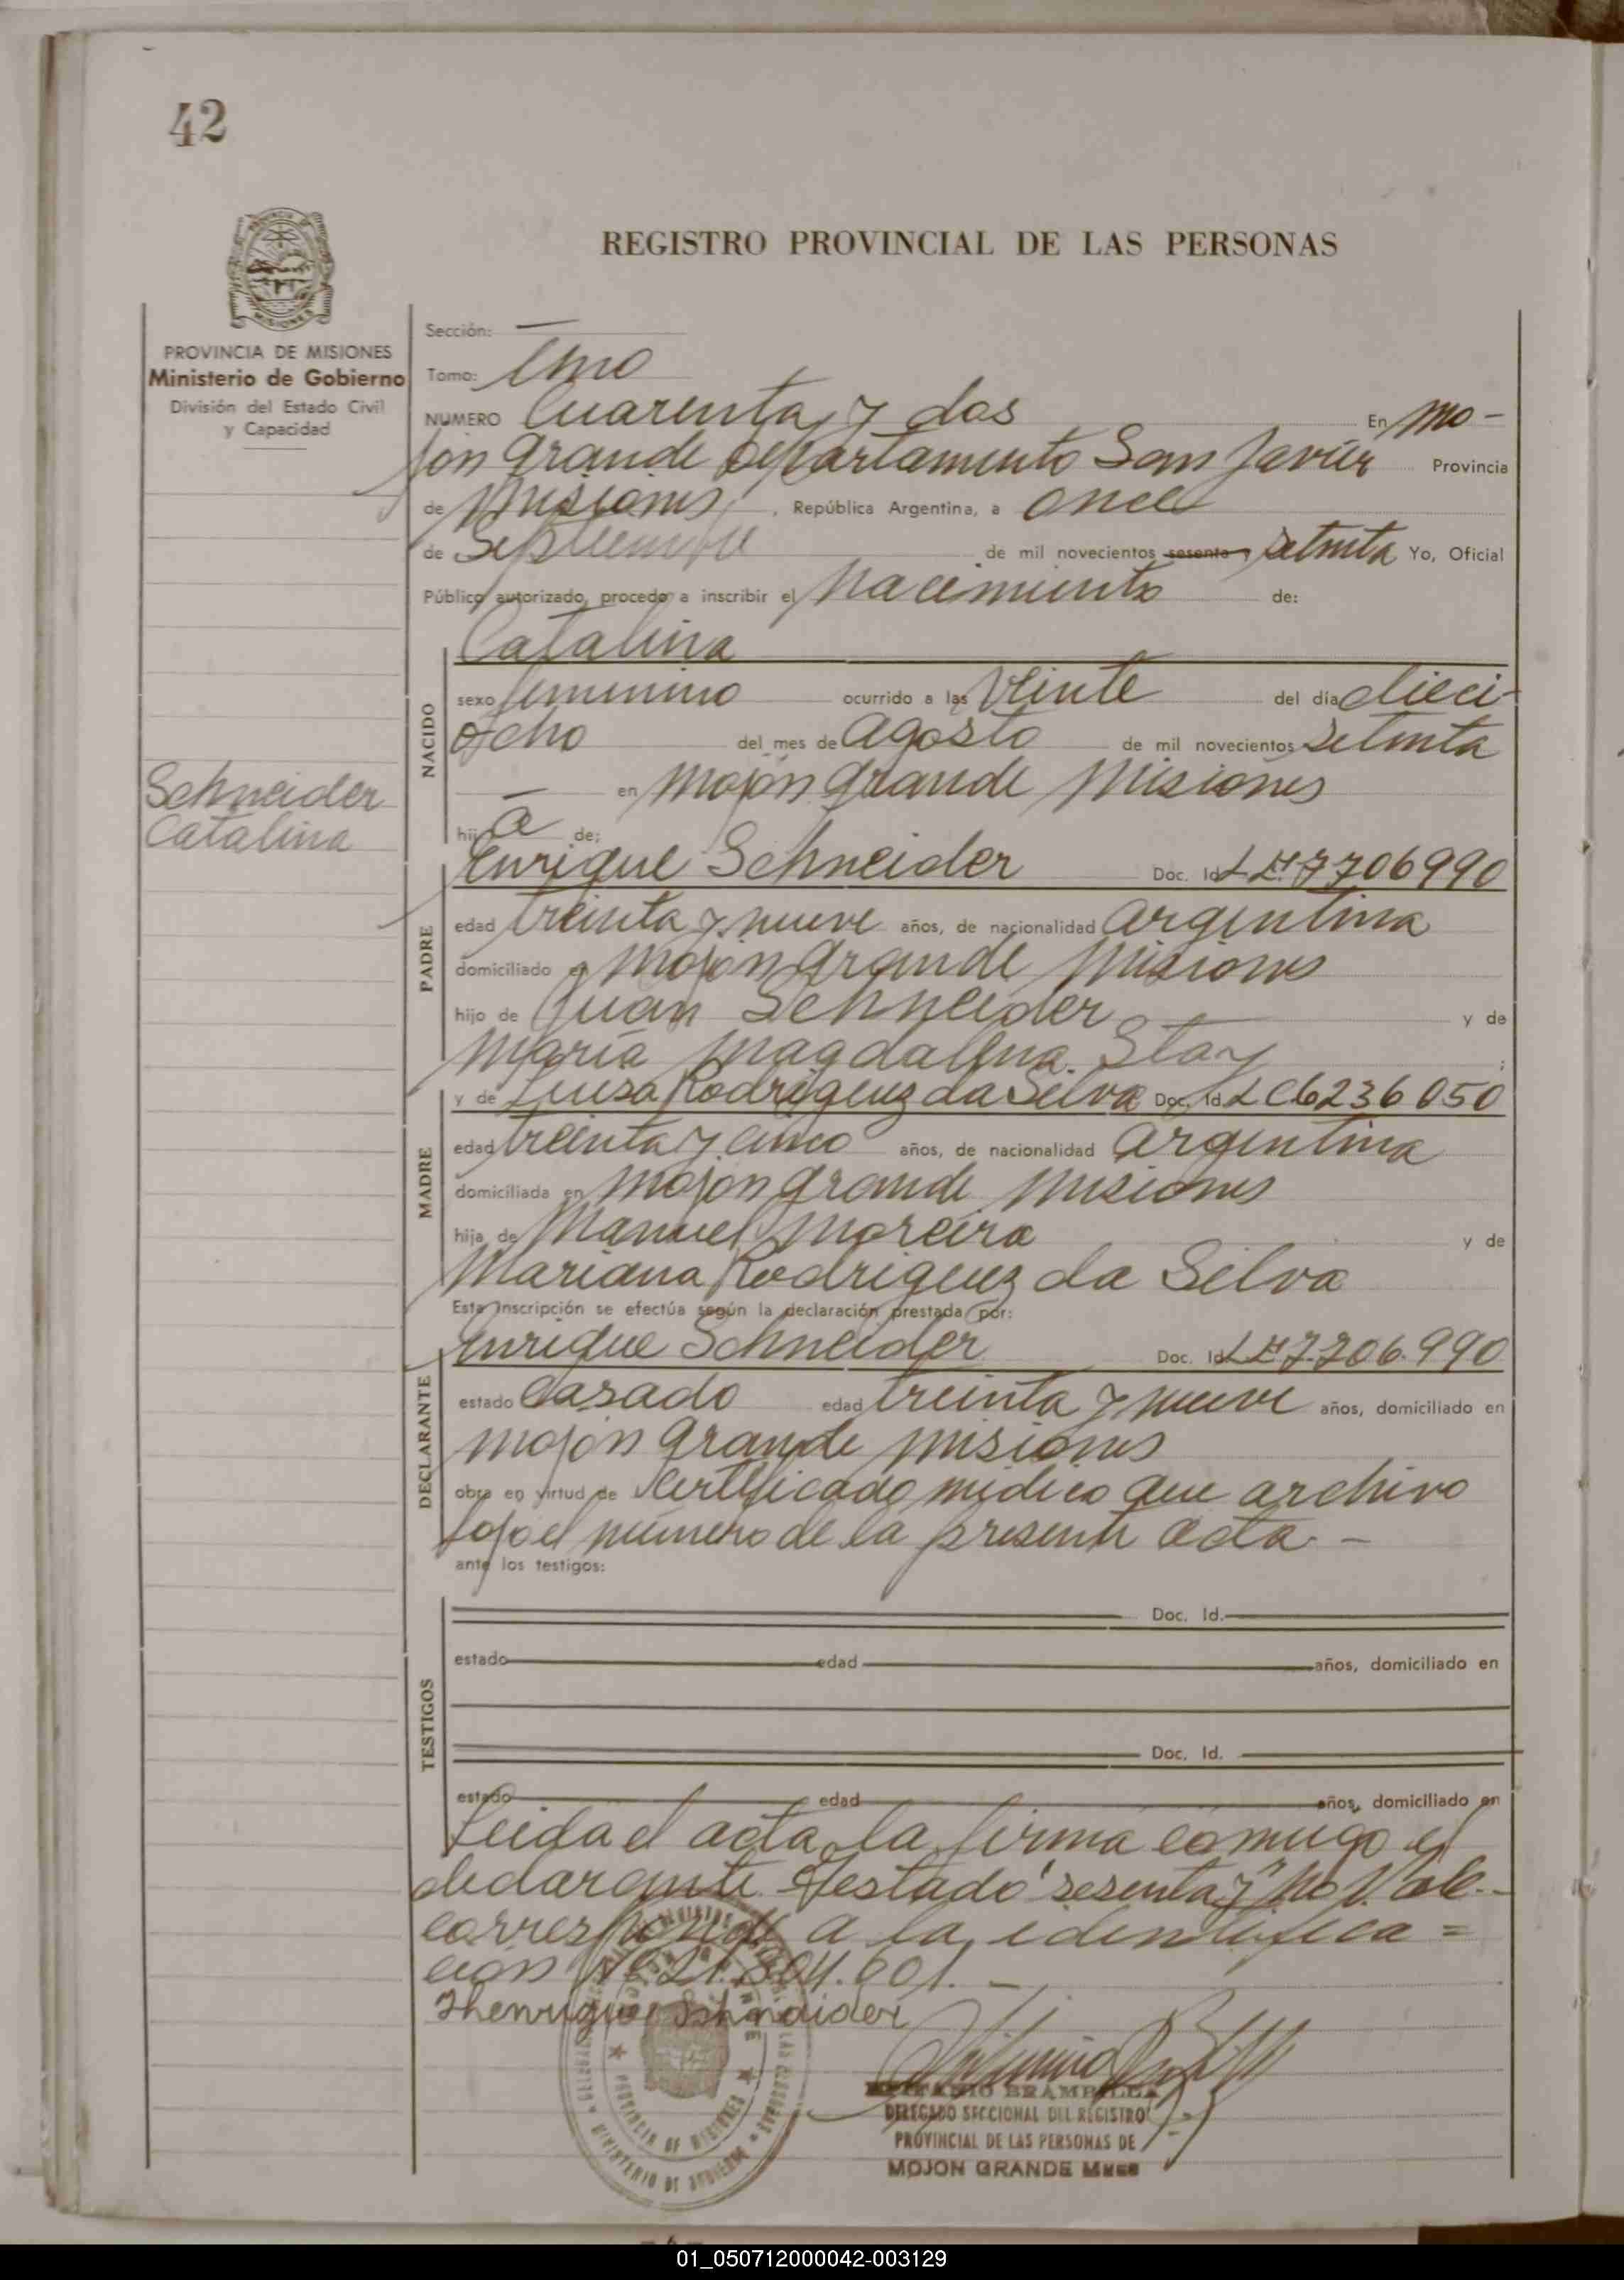 42
REGISTRO PROVINCIAL DE LAS PERSONAS
PROVINCIA DE MISIONES
Ministerio de Gobierno
División del Estado Civil
y Capacidad
Schneider
Catalina
Sección: —
Tomo: Uno
NUMERO Cuarenta y dos En Mo-
jón Grande Departamento San Javier Provincia
de Misiones, República Argentina, a once
de Septiembre de mil novecientos sesenta y setenta Yo, Oficial
Público autorizado, procedo a inscribir el Nacimiento de:
Catalina
NACIDO
sexo femenino ocurrido a las veinte del día dieci-
ocho del mes de Agosto de mil novecientos setenta
— en Mojón Grande Misiones
hij a de:
PADRE
Enrique Schneider Doc. Id. L E 7706990
edad treinta y nueve años, de nacionalidad argentina
domiciliado en Mojón Grande Misiones
hijo de Juan Schneider y de
María Magdalena Stay ;
MADRE
y de Luisa Rodriguez da Silva Doc. Id. L C 6236050
edad treinta y cinco años, de nacionalidad argentina
domiciliada en Mojón Grande Misiones
hija de Manuel Moreira y de
Mariana Rodriguez da Silva
Esta Inscripción se efectúa según la declaración prestada por:
DECLARANTE
Enrique Schneider Doc. Id. L E 7.706.990
estado casado edad treinta y nueve años, domiciliado en
Mojón Grande Misiones
obra en virtud de certificado médico que archivo
bajo el número de la presente acta. —
ante los testigos:
TESTIGOS
Doc. Id.
estado edad años, domiciliado en
Doc. Id.
estado edad años, domiciliado en
Leida el acta la firma conmigo el
declarante. Testado "sesenta y" No Vale.-
corresponde a la identifica=
ción Nº 21.304.601. —
Thenrique Schnaider
EPITANIO BRAMBILLA
DELEGADO SECCIONAL DEL REGISTRO
PROVINCIAL DE LAS PERSONAS DE
MOJON GRANDE Mnes
PROVINCIA DE MISIONES
MINISTERIO DE GOBIERNO
01_050712000042-003129